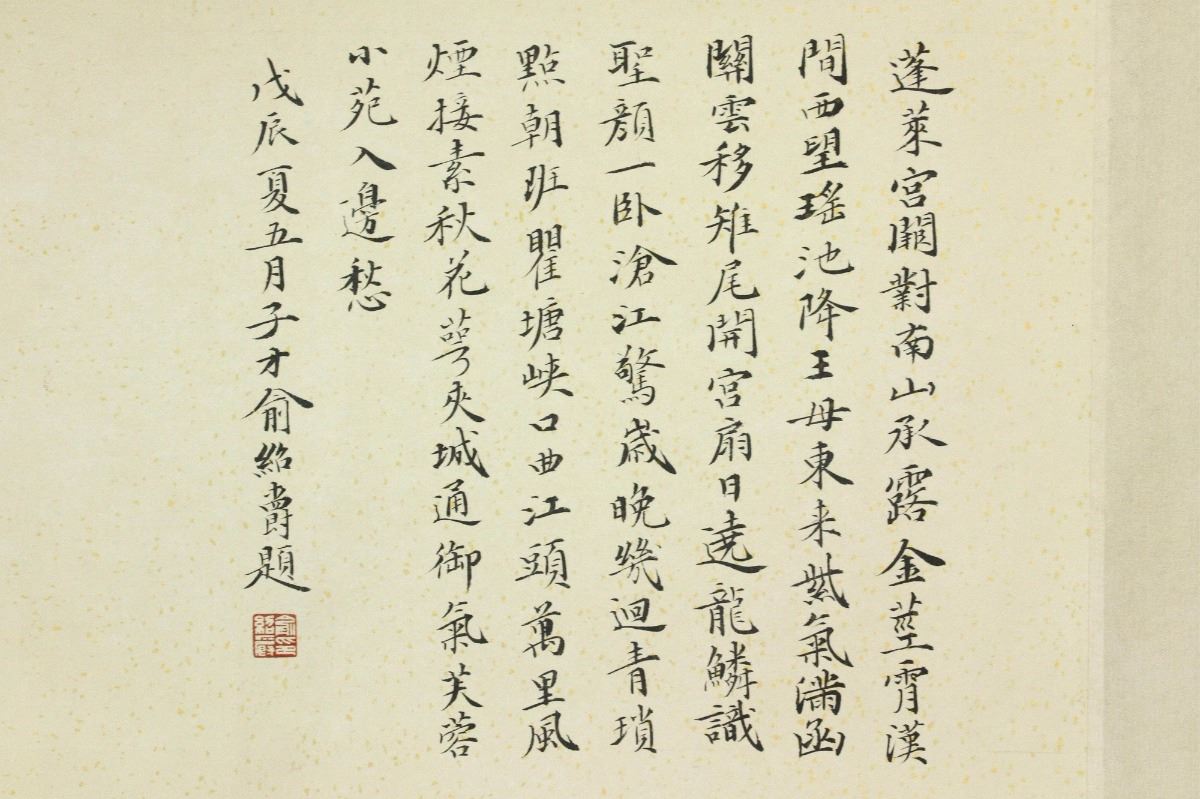 蓬萊宮闕對南山承露金莖霄漢
間西望瑤池降王母東来紫氣滿函
關雲移雉尾開宮扇日遶龍鱗識
聖顏一卧滄江驚歲晚幾迴青瑣
點朝班瞿塘峽口曲江頭萬里風
煙接素秋花萼夾城通御氣芙蓉
小苑入邊愁
戊辰夏五月子才俞紹爵題
俞印紹爵